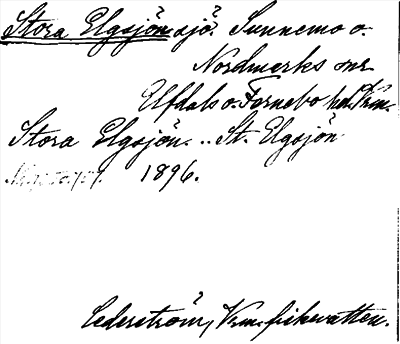 Stora Elgsjön sjö? Sunnemo o.
Nordmarks snr
Elfdals o. Fernebo hd. Vrm.
Stora Elgsjön. .. St. Elgsjön
1896.
Cederström, Vrm. fiskevatten.